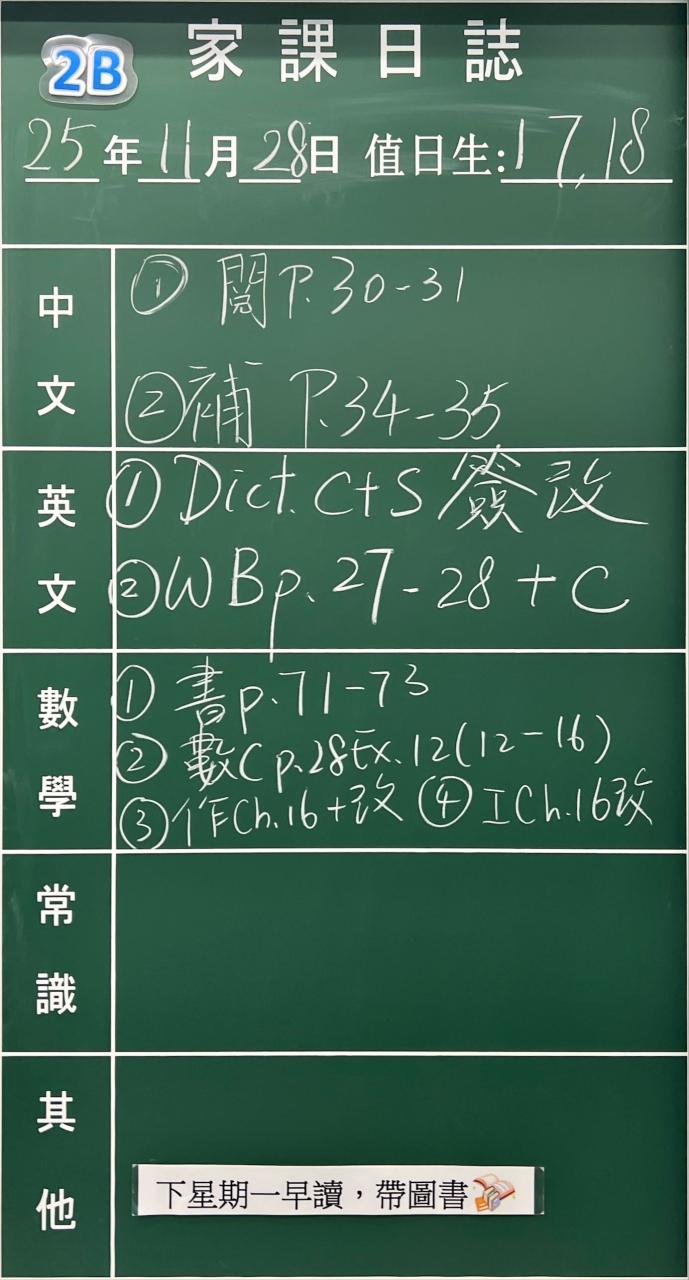 2B 家課日誌
25年11月28日 值日生:17,18
中文
① 閱P.30-31
② 補 P.34-35
英文
① Dict. C+S 簽改
② WB p.27-28+C
數學
① 書p.71-73
② 數C p.28 Ex.12(12-16)
③ 作Ch.16+改 ④ I Ch.16改
常識
其他
下星期一早讀，帶圖書